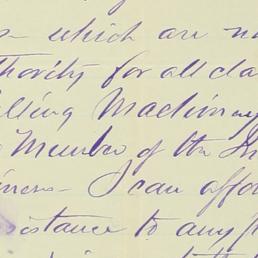 which are no
thority for all cla
lling Machinery
Member of the In
iners - I can affo
sistance to any p